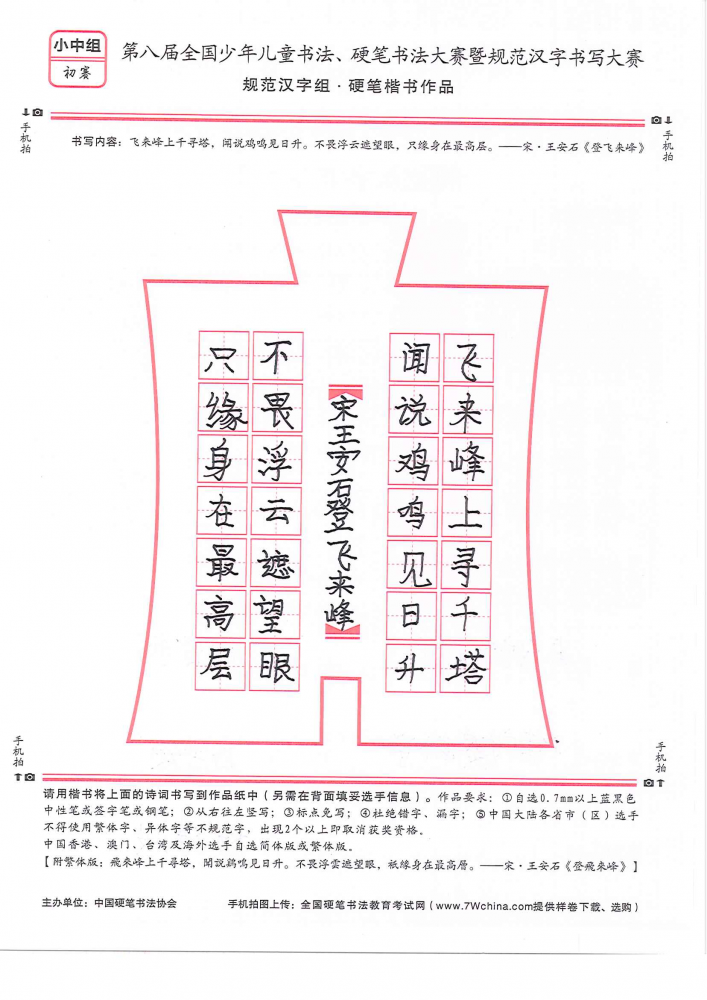 小中组
初赛
第八届全国少年儿童书法、硬笔书法大赛暨规范汉字书写大赛
规范汉字组·硬笔楷书作品
手机拍
手机拍
书写内容：飞来峰上千寻塔，闻说鸡鸣见日升。不畏浮云遮望眼，只缘身在最高层。——宋·王安石《登飞来峰》
飞来峰上寻千塔
闻说鸡鸣见日升
宋王安石登飞来峰
不畏浮云遮望眼
只缘身在最高层
手机拍
手机拍
请用楷书将上面的诗词书写到作品纸中（另需在背面填妥选手信息）。作品要求：①自选0.7mm以上蓝黑色
中性笔或签字笔或钢笔；②从右往左竖写；③标点免写；④杜绝错字、漏字；⑤中国大陆各省市（区）选手
不得使用繁体字、异体字等不规范字，出现2个以上即取消获奖资格。
中国香港、澳门、台湾及海外选手自选简体版或繁体版。
【附繁体版：飛來峰上千寻塔，聞説鷄鳴見日升。不畏浮雲遮望眼，祇緣身在最高層。——宋·王安石《登飛來峰》】
主办单位：中国硬笔书法协会
手机拍图上传：全国硬笔书法教育考试网（www.7Wchina.com提供样卷下载、选购）